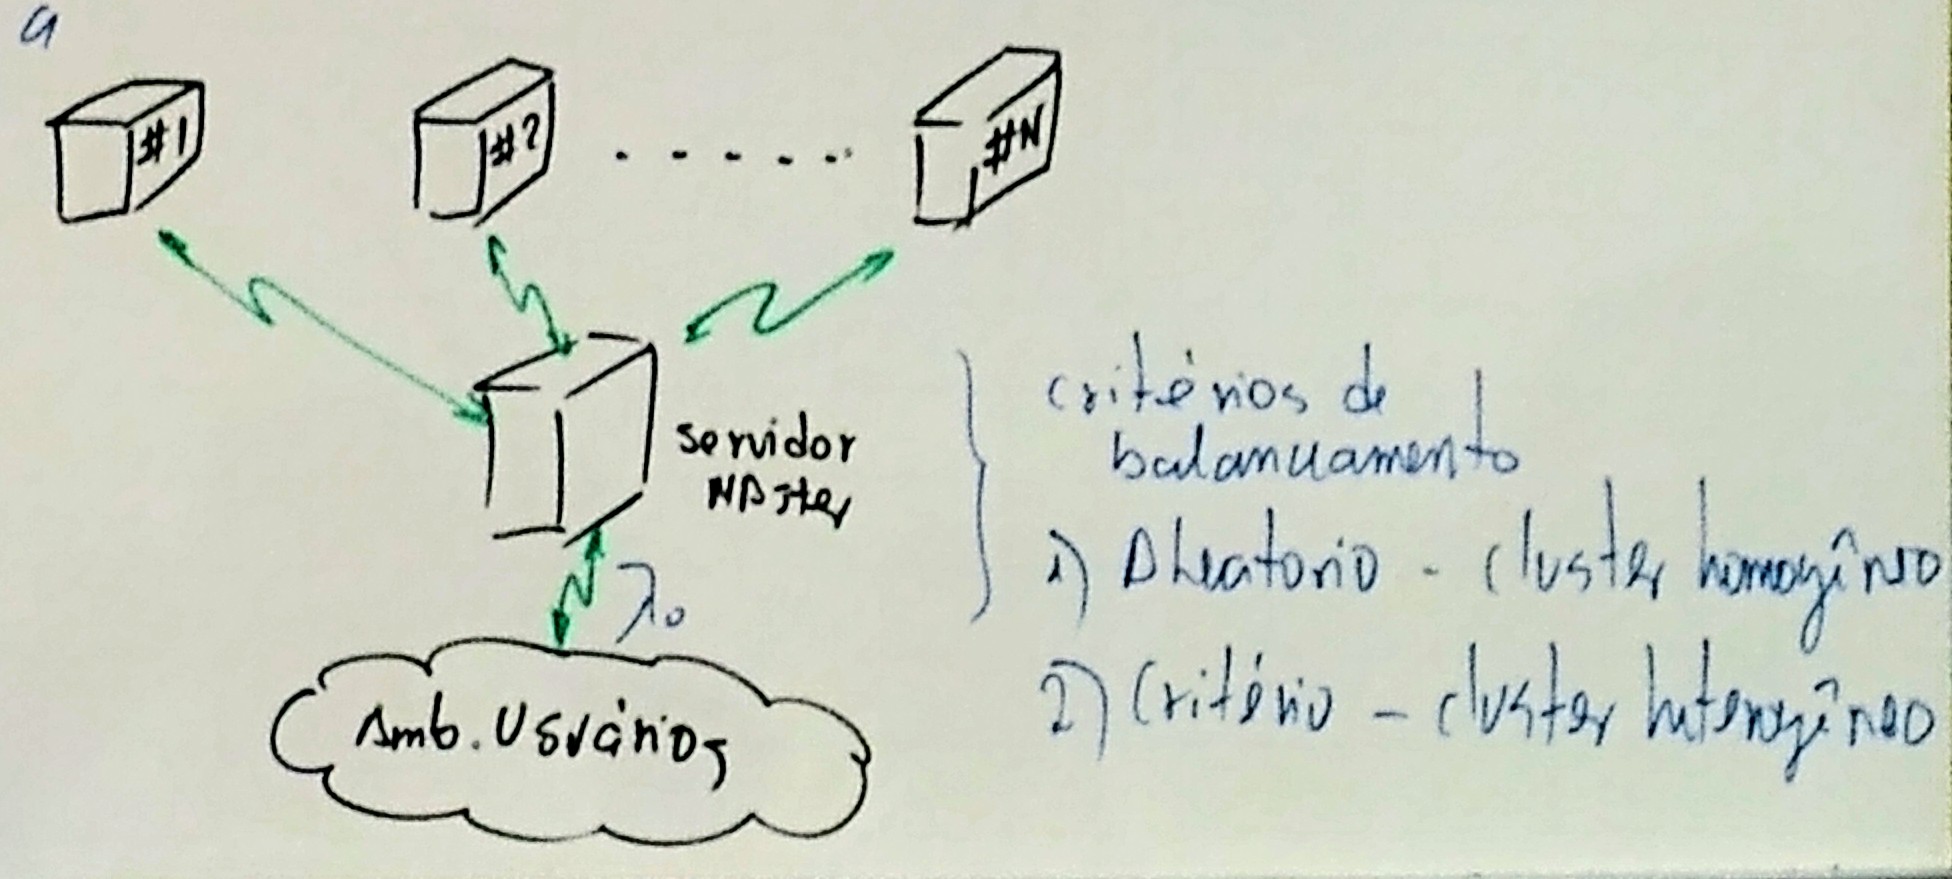 #1
#2
#N
servidor
MASter
λ₀
Amb. Usuários
critérios de
balanceamento
1) Aleatorio - cluster homogêneo
2) Critério - cluster heterogêneo